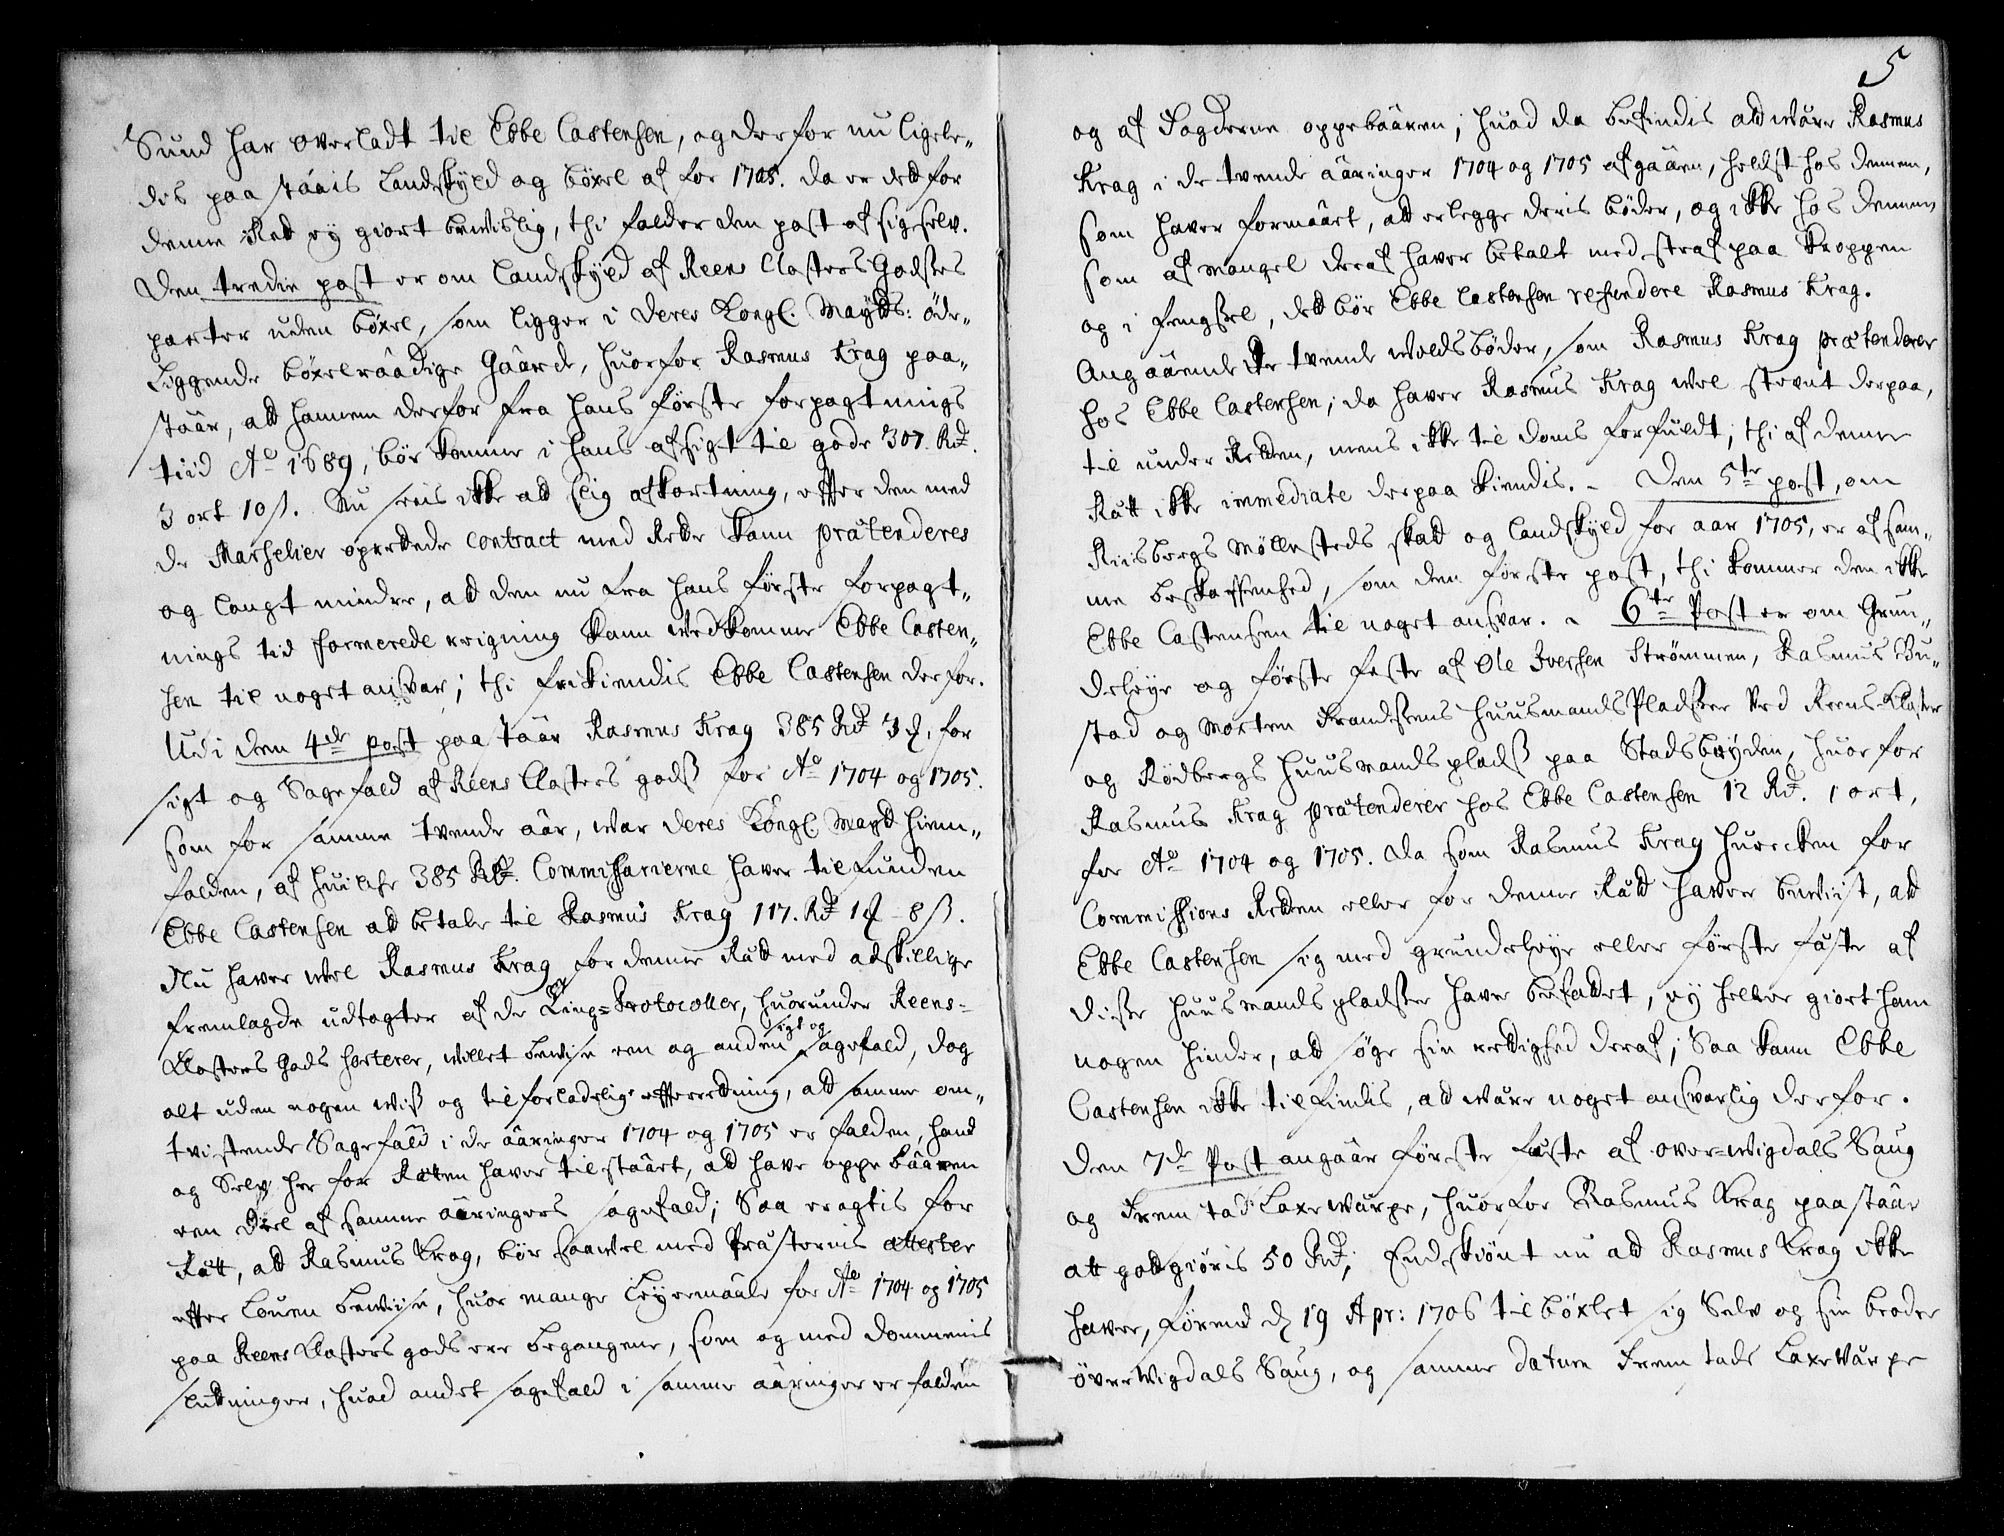 Sund har overladt til Ebbe Castensen, og derfor nu ligele„
des paa staais Landskyld og böxel af for 1705. da er det for
denne Ræt ey giort bevislig, thi falder den post af sig selv.
Den tredie post er om Landskyld af Reens Closters Godses
parter uden böxel, som ligger i Deres Kongl. Maytts: øde„
Liggende böxelraadige Gaarde, huorfor Rasmus Krag paa„
staar, att hannem derfor fra hans første forpagtnings
tiid Ao 1689, bör komme i hans afsigt til gode 307. Rdr.
3 ort 10 s. Nu sees ikke att slig afkortning, effter den med
de Marselier oprettede Contract med Rette kann prætenderes
og langt mindre, att den nu fra hans første forpagt„
nings tid formerede krigning kann vedkomme Ebbe Casten„
sen til noget ansvar; thi frikiendis Ebbe Castensen derfor.
Udi den 4de post paa staar Rasmus Krag 385 Rdr 3 ort, for
sigt og Sagefald af Reens Closters gods for Ao 1704 og 1705.
som for samme tvende aar, war Deres Kongl. Mayt hiem„
falden, af huilche 385 Rdr. Commissarierne haver tilfunden
Ebbe Castensen att betale til Rasmus Krag 117. Rdr 1 ort 8 s.
Nu haver wel Rasmus Krag for denne Rätt med adskillige
fremlagde udtogter af de Ting=Protocoller, huorunder Reens=
Closters Gods sorterer, villet bevise een og anden sigt og sagefald, dog
alt uden nogen wiss og tilforladelige effterretning, att samme om„
tvistende Sagefald i de aaringer 1704 og 1705 er falden, hand
og Selv her for Rætten haver tilstaaet, att have oppebaaren
een deel af samme aaringers sagefald; Saa eragtis for
Rätt, att Rasmus Krag, bör saavel med Præsternis attester
effter Louen bevise, huor mange Leyermaale for Ao 1704 og 1705
paa Reens Closters gods ere begangene, som og med dommenis
slutninger, huad andet sagefald i samme aaringer er falden
5
og af Fogderne oppebaaren; huad da befindis att være Rasmus
Krag i de tvende aaringer 1704 og 1705 afgaaen, heldst hos dennem,
som haver formaaet, att erlegge deris böder, og ikke hos dennem
som af mangel deraf haver betalt med straf paa kroppen
og i fengsel, det bör Ebbe Castensen refundere Rasmus Krag.
Angaaende de tvende voldsböder, som Rasmus Krag prætenderer
hos Ebbe Castensen; da haver Rasmus Krag wel stevnt derpaa,
til under Retten, mens ikke til doms forfuldt; thi af denne
Rätt ikke immediate derpaa kiendis. – Den 5te post, om
Riisbergs Møllesteds skatt og Landskyld for aar 1705, er af sam„
me beskaffenhed, som den første post, thi kommer den ikke
Ebbe Castensen til noget ansvar. – 6te Post er om Grun„
deleye og første feste af Ole Iversen Strømmen, Rasmus Bu„
stad og Morten Frandsens HuusmandsPladser ved Reens-Kloster
og Rødbergs Huusmandsplads paa Stadsbøyden, huorfor
Rasmus Krag prætenderer hos Ebbe Castensen 12 Rdr. 1 ort,
for Ao 1704 og 1705. Da som Rasmus Krag huercken for
Commissions Retten eller for denne Rätt haver beviist, att
Ebbe Castensen sig med grundeleye eller første fäste af
disse huusmandspladser haver befattet, ey heller giort ham
nogen hinder, att søge sin rettighed deraf; Saa kann Ebbe
Castensen ikke tilfindis, att være noget ansvarlig derfor.
Den 7de Post angaar første fäste af over=Wigdals Saug
og Fremstad Laxevarpe, huorfor Rasmus Krag paastaar
att godtgiøris 50 Rdr; Endskiönt nu att Rasmus Krag ikke
haver, förend d 19 Apr: 1706 tilböxlet sig Selv og sin broder
överWigdals Saug, og samme datum Fremstads Laxevarpe